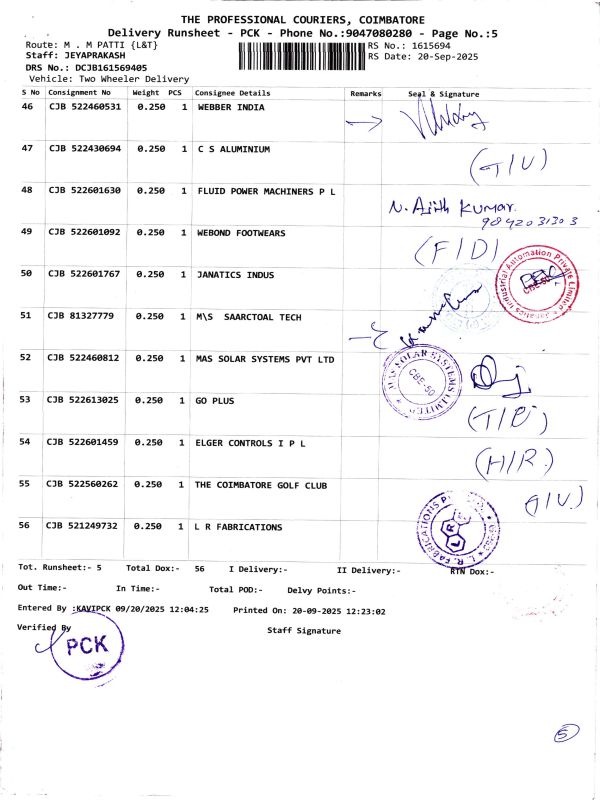 THE PROFESSIONAL COURIERS, COIMBATORE
Delivery Runsheet - PCK - Phone No.:9047080280 - Page No.:5
Route: M . M PATTI {L&T}
RS No.: 1615694
Staff: JEYAPRAKASH
RS Date: 20-Sep-2025
DRS No.: DCJB161569405
Vehicle: Two Wheeler Delivery
S No Consignment No Weight PCS Consignee Details Remarks Seal & Signature
46 CJB 522460531 0.250 1 WEBBER INDIA
47 CJB 522430694 0.250 1 C S ALUMINIUM
48 CJB 522601630 0.250 1 FLUID POWER MACHINERS P L N. Ajith Kumar.
9842031303
49 CJB 522601092 0.250 1 WEBOND FOOTWEARS (F/D)
50 CJB 522601767 0.250 1 JANATICS INDUS
51 CJB 81327779 0.250 1 M\S SAARCTOAL TECH
52 CJB 522460812 0.250 1 MAS SOLAR SYSTEMS PVT LTD
MAS SOLAR SYSTEMS LIMITED
CBE-50
53 CJB 522613025 0.250 1 GO PLUS
54 CJB 522601459 0.250 1 ELGER CONTROLS I P L (H/R.)
55 CJB 522560262 0.250 1 THE COIMBATORE GOLF CLUB
56 CJB 521249732 0.250 1 L R FABRICATIONS
Tot. Runsheet:- 5 Total Dox:- 56 I Delivery:- II Delivery:- RTN Dox:-
Out Time:- In Time:- Total POD:- Delvy Points:-
Entered By :KAVIPCK 09/20/2025 12:04:25 Printed On: 20-09-2025 12:23:02
Verified By Staff Signature
PCK
5